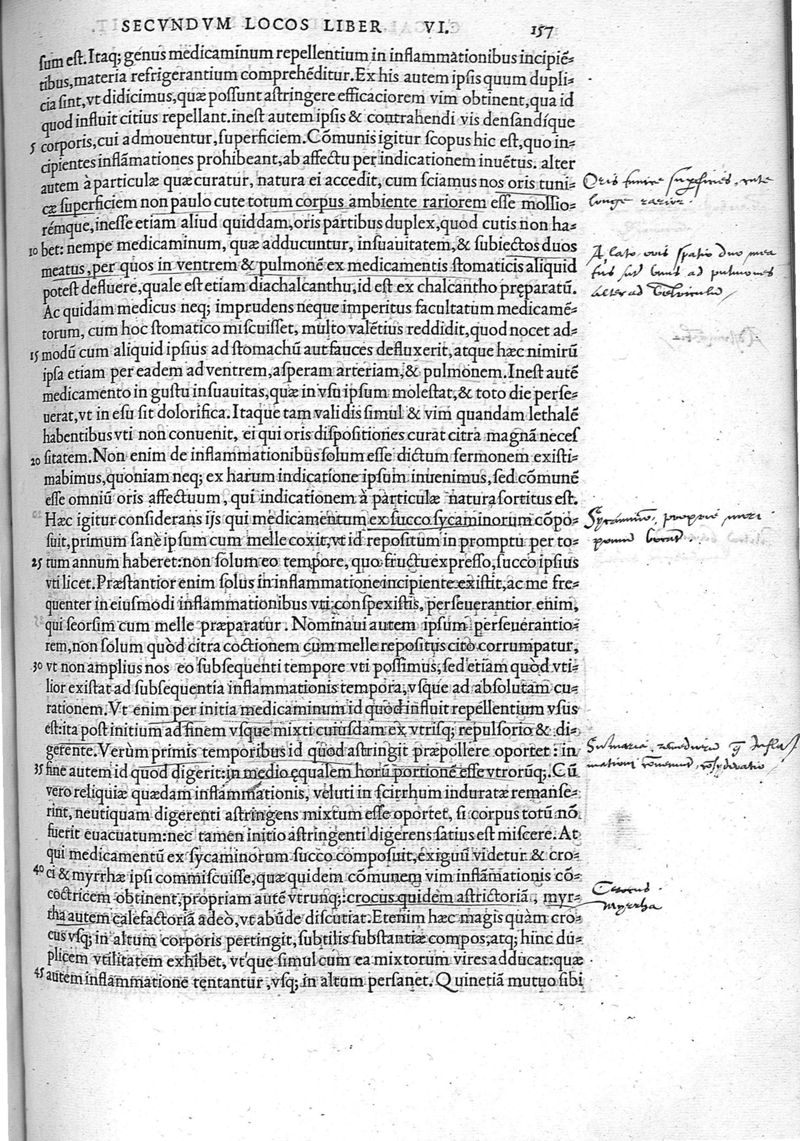 SECVNDVM LOCOS LIBER VI. 157
sum est. Itaq; genus medicaminum repellentium in inflammationibus incipiẽ-
tibus, materia refrigerantium comprehẽditur. Ex his autem ipsis quum dupli-
cia sint, vt didicimus, quæ possunt astringere efficaciorem vim obtinent, qua id
quod influit citius repellant. inest autem ipsis & contrahendi vis densandíque
5 corporis, cui admouentur, superficiem. Cõmunis igitur scopus hic est, quo in-
cipientes inflãmationes prohibeant, ab affectu per indicationem inuẽtus. alter
autem à particulæ quæ curatur, natura ei accedit, cum sciamus nos oris tuni-
cæ superficiem non paulo cute totum corpus ambiente rariorem esse mollio-
rémque, inesse etiam aliud quiddam, oris partibus duplex, quod cutis non ha-
10 bet: nempe medicaminum, quæ adducuntur, insuauitatem, & subiectos duos
meatus, per quos in ventrem & pulmonẽ ex medicamentis stomaticis aliquid
potest defluere, quale est etiam diachalcanthu, id est ex chalcantho pręparatũ.
Ac quidam medicus neq; imprudens neque imperitus facultatum medicamẽ-
torum, cum hoc stomatico miscuisset, multo valẽtius reddidit, quod nocet ad-
15 modũ cum aliquid ipsius ad stomachũ aut fauces defluxerit, atque hæc nimirũ
ipsa etiam per eadem ad ventrem, asperam arteriam, & pulmonem. Inest autẽ
medicamento in gustu insuauitas, quæ in vsu ipsum molestat, & toto die perse-
uerat, vt in esu sit dolorifica. Itaque tam validis simul & vim quandam lethalẽ
habentibus vti non conuenit, ei qui oris dispositiones curat citra magnã neces
20 sitatem. Non enim de inflammationibus solum esse dictum sermonem existi-
mabimus, quoniam neq; ex harum indicatione ipsum inuenimus, sed cõmunẽ
esse omniũ oris affectuum, qui indicationem à particulæ natura sortitus est.
Hæc igitur considerans ijs qui medicamentum ex succo sycaminorum cõpo-
suit, primum sanè ipsum cum melle coxit, vt id repositum in promptu per to-
25 tum annum haberet: non solum eo tempore, quo fructu expresso, succo ipsius
vti licet. Præstantior enim solus in inflammatione incipiente existit, ac me fre-
quenter in eiusmodi inflammationibus vti conspexistis, perseuerantior enim,
qui seorsim cum melle præparatur. Nominaui autem ipsum perseuerantio-
rem, non solum quòd citra coctionem cum melle repositus cito corrumpatur,
30 vt non amplius nos eo subsequenti tempore vti possimus, sed etiam quòd vti-
lior existat ad subsequentia inflammationis tempora, vsque ad absolutam cu-
rationem. Vt enim per initia medicaminum id quod influit repellentium vsus
est: ita post initium ad finem vsque mixti cuiusdam ex vtrisq; repulsorio & di-
gerente. Verùm primis temporibus id quod astringit præpollere oportet: in
35 fine autem id quod digerit: in medio ęqualem horũ portionẽ esse vtrorũq;. Cũ
vero reliquiæ quædam inflammationis, veluti in scirrhum induratæ remanse-
rint, neutiquam digerenti astringens mixtum esse oportet, si corpus totũ nõ
fuerit euacuatum: nec tamen initio astringenti digerens satius est miscere. At
qui medicamentũ ex sycaminorum succo composuit, exiguũ videtur & cro-
40 ci & myrrhæ ipsi commiscuisse, quæ quidem cõmunem vim inflãmationis cõ-
coctricem obtinent, propriam autẽ vtrunq;: crocus quidem astrictoriã, myr-
rha autem calefactoriã adeò, vt abũde discutiat. Etenim hæc magis quàm cro-
cus vsq; in altum corporis pertingit, subtilis substantiæ compos, atq; hinc du-
plicem vtilitatem exhibet, vt que simul cum ea mixtorum vires adducat: quæ
45 autem inflammatione tentantur, vsq; in altum persanet. Quinetiã mutuo sibi
Oris
longe rarior.
A lato oris spatio duo mea
ad pulmones
alter ad
proprie
Crocus
Myrrha